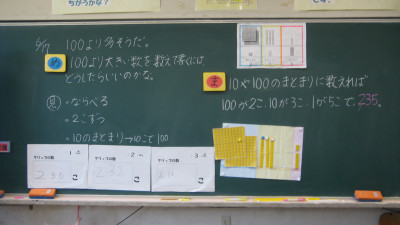 ちがうかな?
です。
6/7 100より多そうだ。
め 100より大きい数を数えて書くには、
どうしたらいいのかな。
見 ・ならべる
・2こずつ
・10のまとまり→10こで100
ま 10や100のまとまりに数えれば
100が2こ、10が3こ、1が5こで、235。
クリップの数
こ
クリップの数
こ
クリップの数
こ